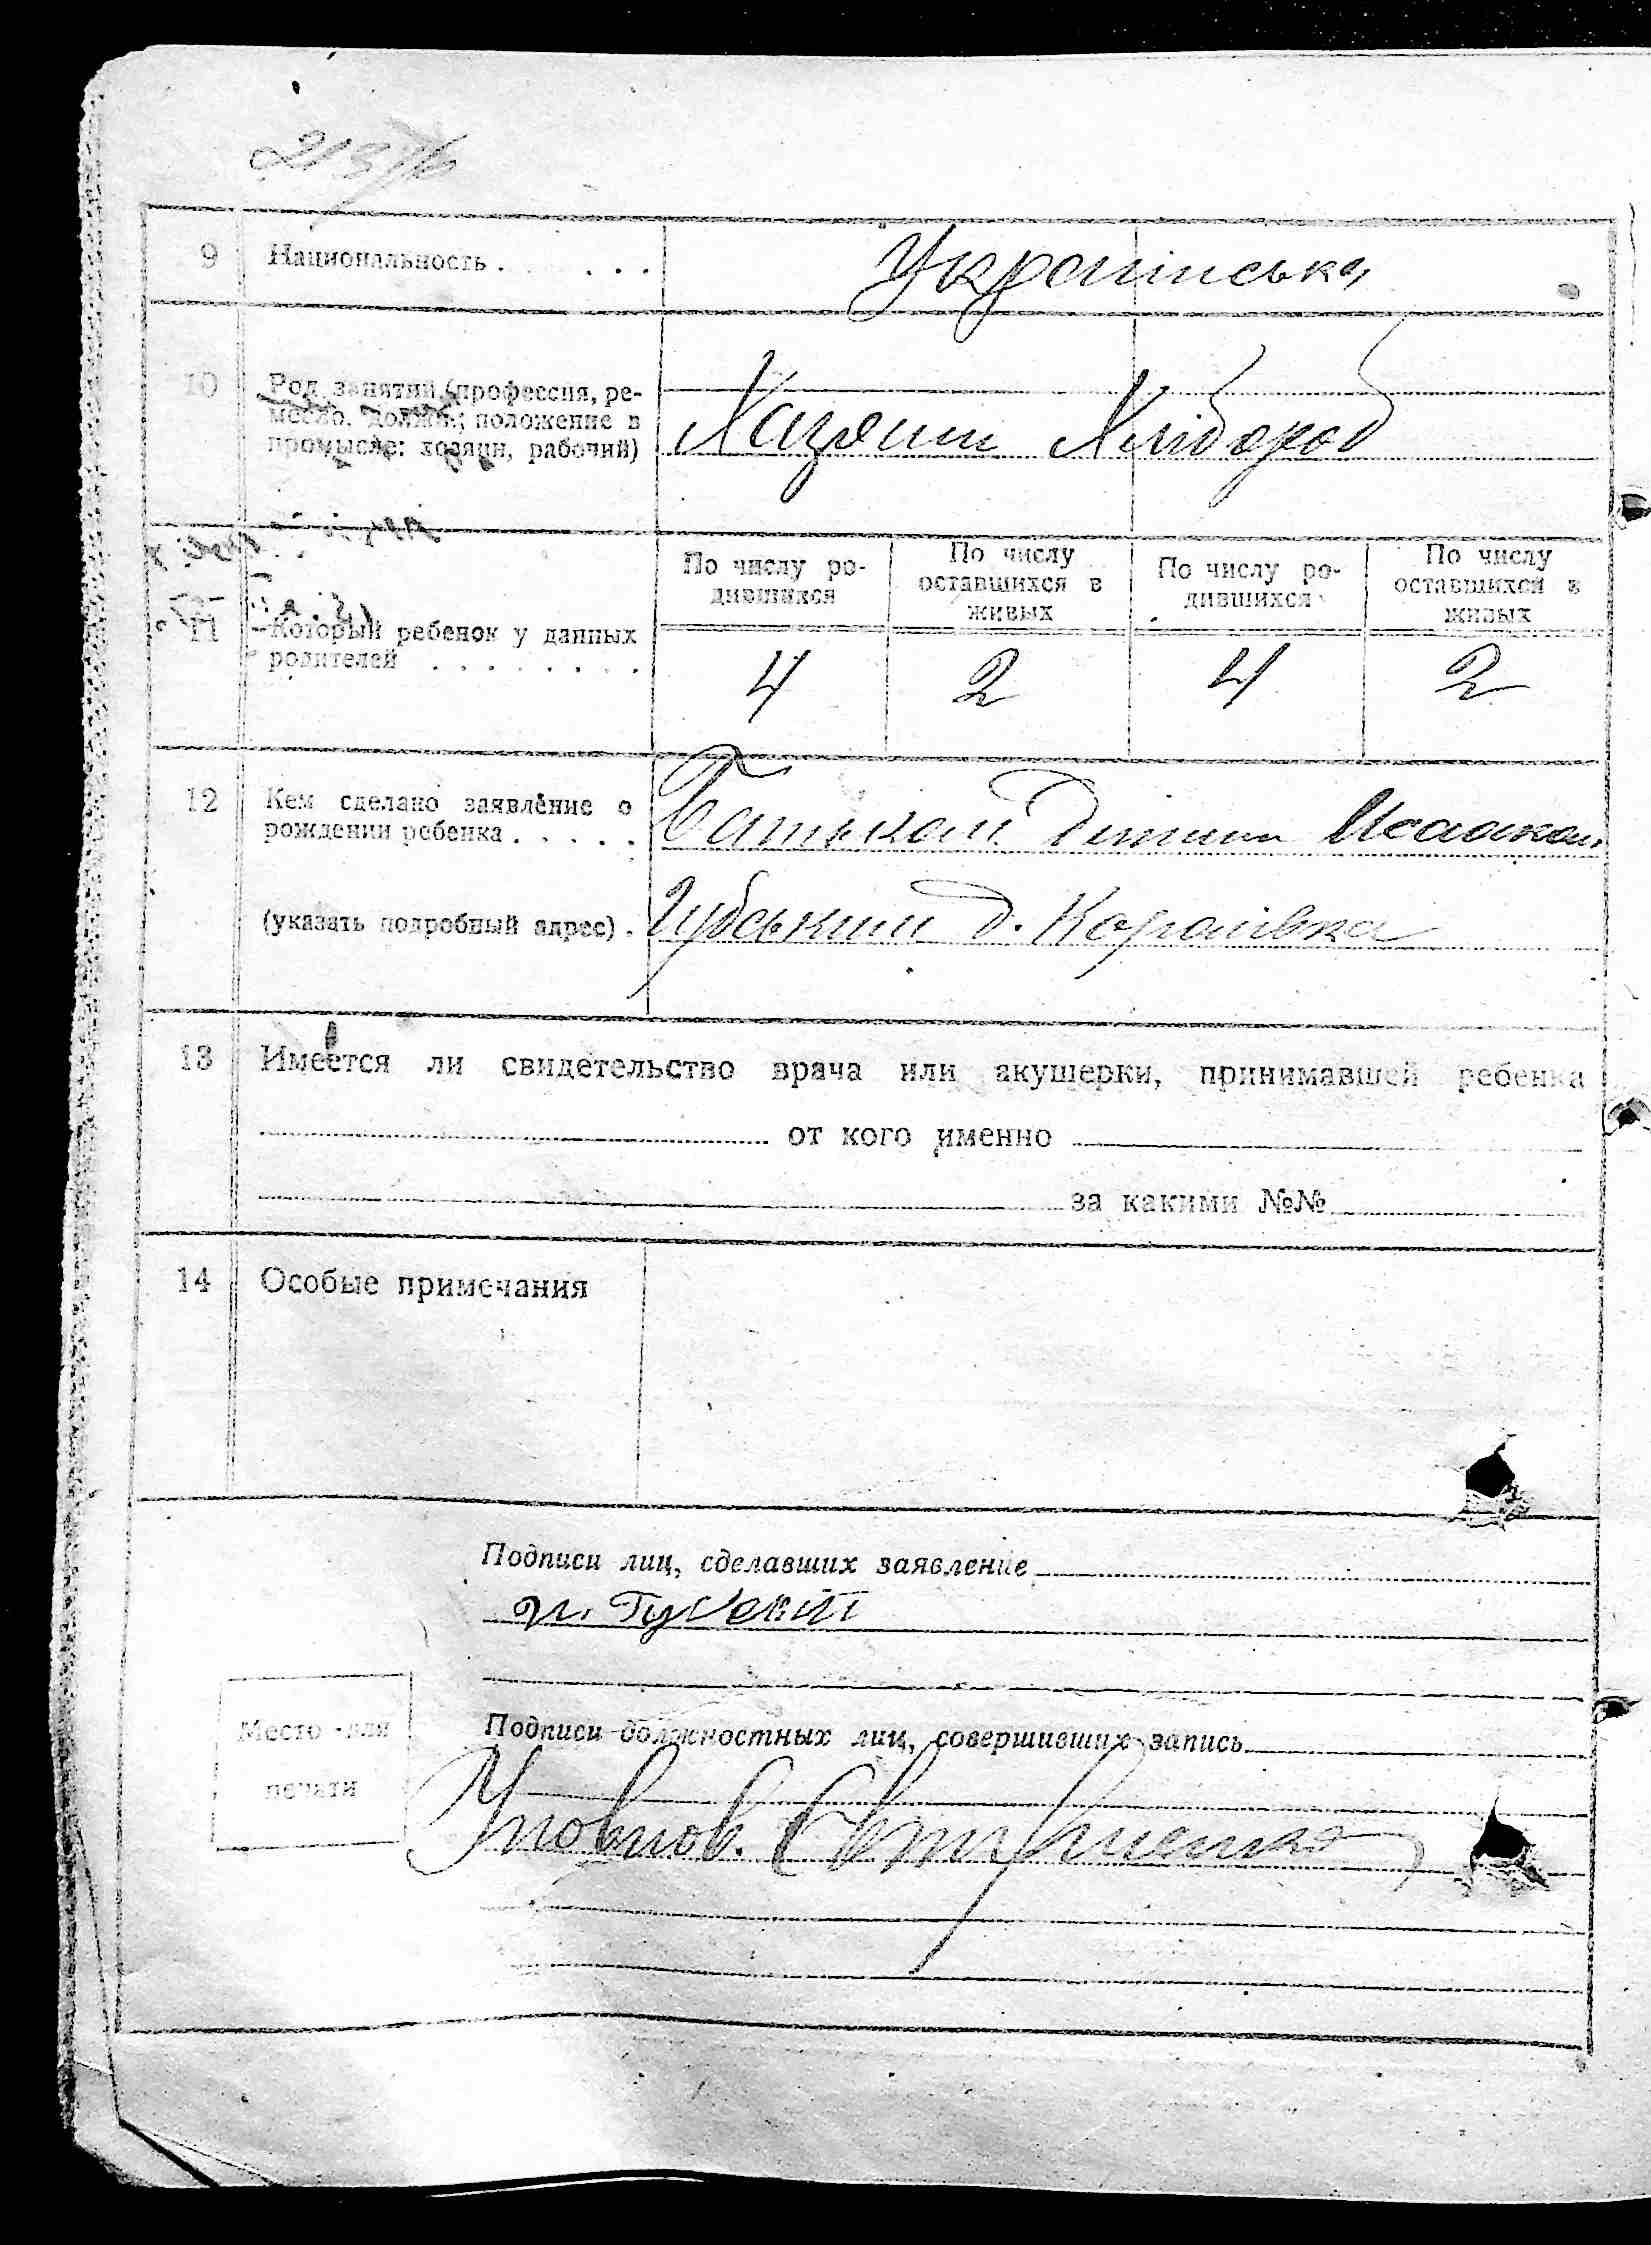 9 Национальность . . . . . Українська
10 Род занятий (профессия, ре-
месло, должн.; положение в
промысле: хозяин, рабочий) Хазяин Хлібороб
По числу ро-
дившихся
По числу
оставшихся в
живых
По числу ро-
дившихся
По числу
оставшихся в
живых
11 Который ребенок у данных
родителей . . . . . . . .
4 2 4 2
12 Кем сделано заявление о
рождении ребенка . . . . . Батьком дитини
(указать подробный адрес) . д. Кораївка
13 Имеется ли свидетельство врача или акушерки, принимавшей ребенка
от кого именно
за какими №№
14 Особые примечания
Подписи лиц, сделавших заявление
Место для
печати
Подписи должностных лиц, совершивших запись